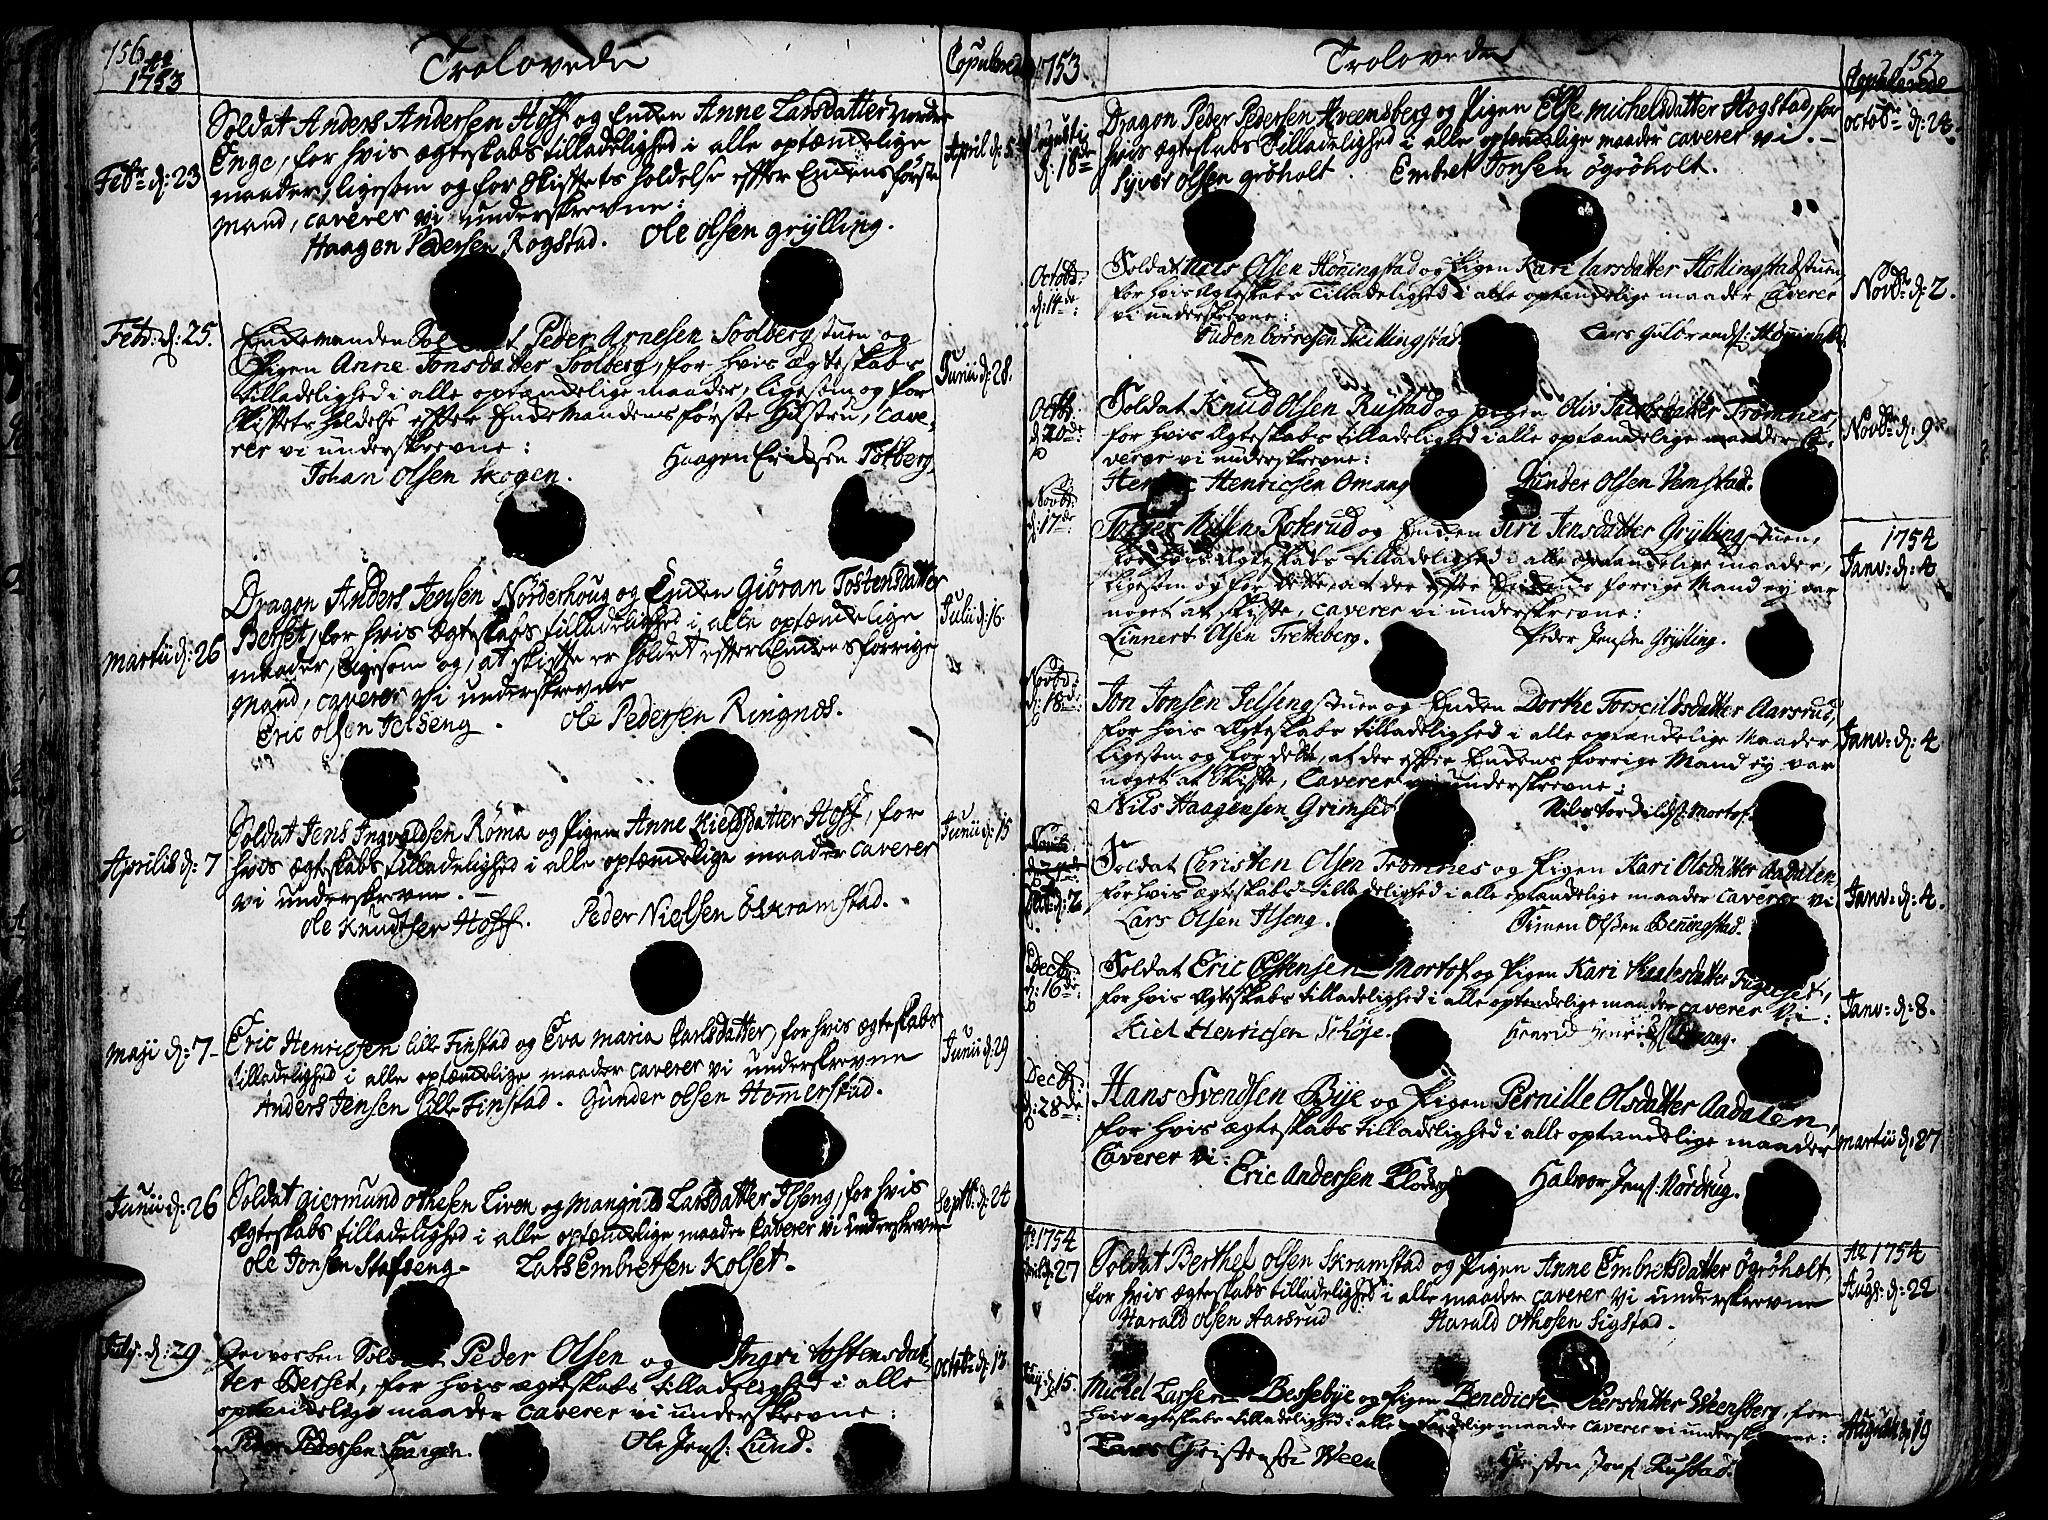 156
Aº 1753
Trolovede
Copulerede
Febr: d: 23
Soldat Anders Andersen Hoff og Enken Anne Larsdatter
Enge, for hvis ægteskabs tilladelighed i alle optænkelige
maader, ligesom og for skiftets holdelse effter Enkens første
mand, caverer vi underskrevne:
Haagen Pedersen Rogstad. Ole Olsen Grylling.
April d: 5
Febr: d: 25.
Enkemanden Soldat Peder Arnesen Soolbergstuen og
Pigen Anne Jonsdatter Soolberg, for hvis ægteskabs
tilladelighed i alle optænkelige maader, ligesom og for
Skiftets holdelse effter Enkemandens første Hustru, cave-
rer vi underskrevne:
Johan Olsen Skogen. Haagen Ericksen Tofberg
Junii d: 28.
Martii d: 26
Dragon Anders Jensen Nørderhoug og Enken Giøran Tostensdatter
Berset, for hvis ægteskabs tilladelighed i alle optænkelige
maader, ligesom og, at skifte er holdet effter Enkens forrige
Mand, caverer Vi underskrevne
Eric Olsen Jelseng. Ole Pedersen Ringnæs.
Julii d: 16.
Aprilis d: 7
Soldat Jens Ingvaldsen Røma og Pigen Anne Kieldsdatter Hoff, for
hvis ægteskabs tilladelighed i alle optænkelige maader caverer
vi underskrevne.
Ole Knudtsen Hoff. Peder Nielsen Øskramstad.
Junii d: 15
Maji d: 7
Eric Henrigsen lille Finstad og Eva Maria Carlsdatter, for hvis ægteskabs
tilladelighed i alle optænkelige maader caverer vi underskrevne
Anders Jensen lille Finstad. Gunder Olsen Hommerstad.
Junii d: 29
Junii d: 26
Soldat Giermund Othesen Liven og Mangnild Larsdatter Ilseng, for hvis
ægteskabs tilladelighed i alle optænkelige maader Caverer vi underskrevne
Ole Jonsen Stafseng. Lars Embretsen Kolset.
Septb: d: 24
July: d: 29
Soldat Peder Olsen og Ingri Tostensdat-
ter Berset, for hvis ægteskabs tilladelighed i alle
optænkelige maader caverer vi underskrevne:
Peder Pedersen Ole Jens: Lund.
Octobr d: 12.
1753.
Trolovede
157
Copulerede
Augusti d: 18de
Dragon Peder Pedersen Hveensberg og Pigen Else Michelsdatter Hogstad, for
hvis ægteskabs Tilladelighed i alle optænkelige maader caverer vi.
Syver Olsen Grøholt. Embret Jonsen Øgrøholt.
Octobr d: 24.
Octobr: d: 14de:
Soldat Nils Olsen Hønningstad og Pigen Kari Larsdatter Skollingstadstuen,
for hvis ægteskabs Tilladelighed i alle optænkelige maader Caverer
vi underskrevne:
Børresen Skillingstad Lars Gulbrands:
Novbr d: 2.
Octb: d: 20de
Soldat Knud Olsen Rustad og Pigen Oliv Jacobsdatter Tromnes,
for hvis ægteskabs tilladelighed i alle optænkelige maader Ca-
verer vi underskrevne:
Henric Henricsen Omang Gunder Olsen Vemstad.
Novbr d: 9de
Novbr: d: 17de
Torger Nilsen Roterud og Enken Siri Jensdatter Gryllingstuen,
for hvis ægteskabs tilladelighed i alle optænkelige maader,
ligesom og for dette, at der efter Enkens forrige Mand ey var
noget at skifte, caverer vi underskrevne:
Linnert Olsen Tretteberg. Peder Jensen Grylling.
1754
Janv: d: 4
Novbr: d: 18de
Jon Jonsen Jelsengstuen og Enken Dorthe Torgildsdatter Aarsrud,
for hvis ægteskabs tilladelighed i alle optænkelige Maader,
ligesom og for dette, at der effter Enkens forrige Mand ey var
noget at skifte, Caverer vi underskrevne:
Nils Haagensen Grimsed Nils Mortof.
Janv: d: 4
d: 2
Soldat Christen Olsen Tromnes og Pigen Kari Olsdatter Aadalen
for hvis ægteskabs tilladelighed i alle optænkelige maader caverer vi
Lars Olsen Ilseng. Simen Olsen Benningstad.
Janv: d: 4.
Decb: d: 16de
Soldat Eric Estensen Mortof og Pigen Kari
for hvis ægteskabs tilladelighed i alle optænkelige maader caverer Vi:
Kiel Henricsen Schøje. Henrich Henrics: Omang.
Janv: d: 8.
Decb: d: 28de
Hans Svendsen Bye og Pigen Pernille Olsdatter Aadalen,
for hvis ægteskabs tilladelighed i alle optænkelige maader
Caverer vi:
Eric Andersen Halvor Jens: Nordrug.
Martii d: 27
Aº 1754
d: 27
Soldat Berthel Olsen Skramstad og Pigen Anne Embretsdatter Øgrøholt,
for hvis ægteskabs tilladelighed i alle maader caverer Vi underskrevne
Harald Olsen Aarsrud Harald Othosen Sigstad.
Aº 1754
Aug: d: 22
d: 15.
Michel Larsen Bessebye og Pigen Benedicte Peersdatter Weensberg, for
hvis ægteskabs tilladelighed i alle optænkelige maader caverer vi underskrevne:
Lars Christensen Ween Christen Jens: Rustad.
August d: 19